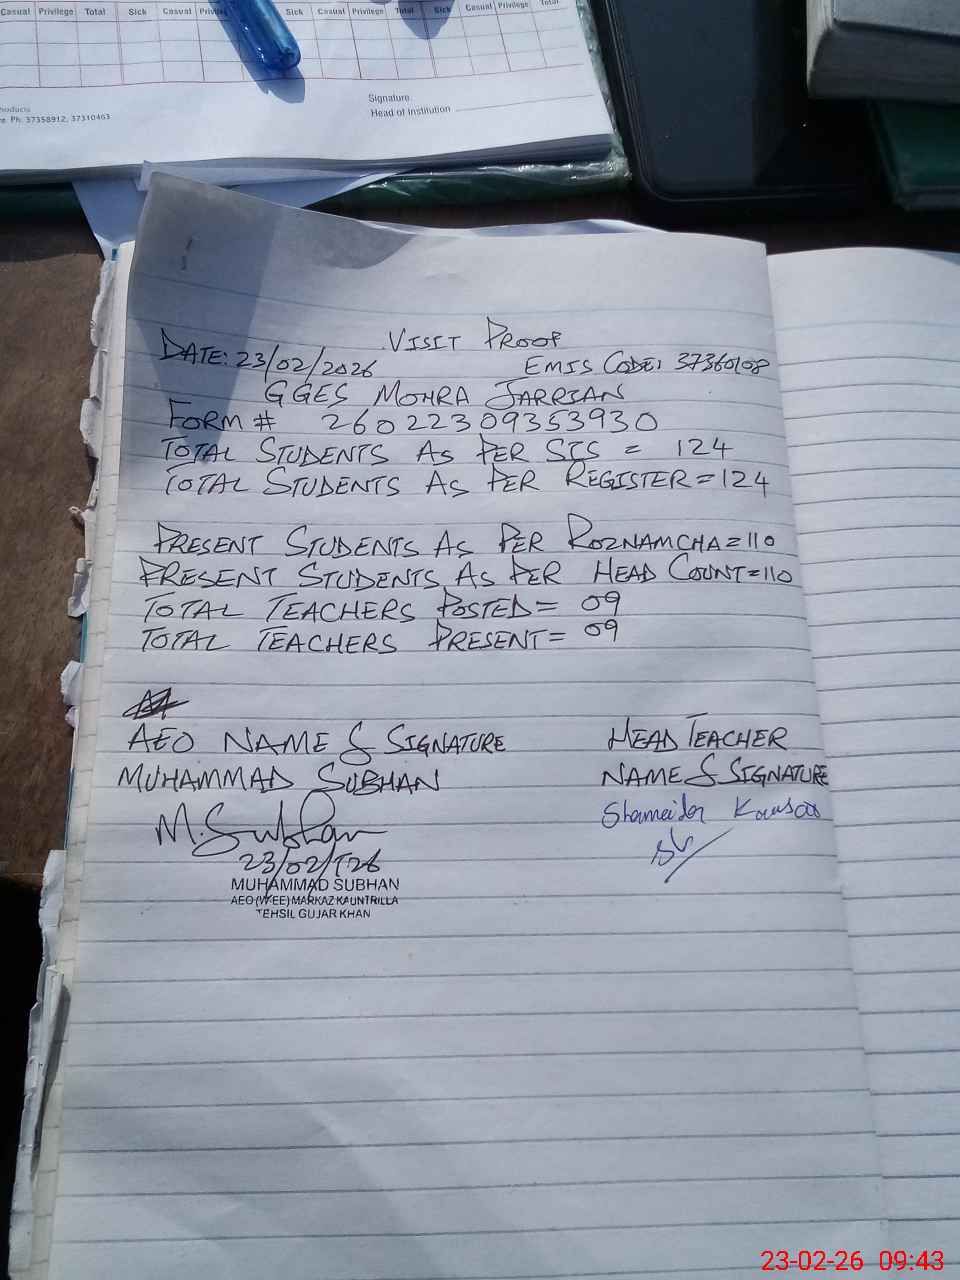 Casual Privilege Total Sick Casual Privileg Sick Casual Privilege Total Sick Casual Privilege Total
Products
Signature.
Head of Institution
e Ph: 37358912, 37310463
VISIT PROOF
DATE: 23/02/2026 EMIS CODE: 37360108
GGES MOHRA JARRIAN
FORM # 26022309353930
TOTAL STUDENTS AS PER SIS = 124
TOTAL STUDENTS AS PER REGISTER = 124
PRESENT STUDENTS AS PER ROZNAMCHA = 110
PRESENT STUDENTS AS PER HEAD COUNT = 110
TOTAL TEACHERS POSTED = 09
TOTAL TEACHERS PRESENT = 09
AEO NAME & SIGNATURE HEAD TEACHER
MUHAMMAD SUBHAN NAME & SIGNATURE
M. Subhan
23/02/T26
MUHAMMAD SUBHAN
AEO (W-EE) MARKAZ KAUNTRILLA
TEHSIL GUJAR KHAN
23-02-26 09:43